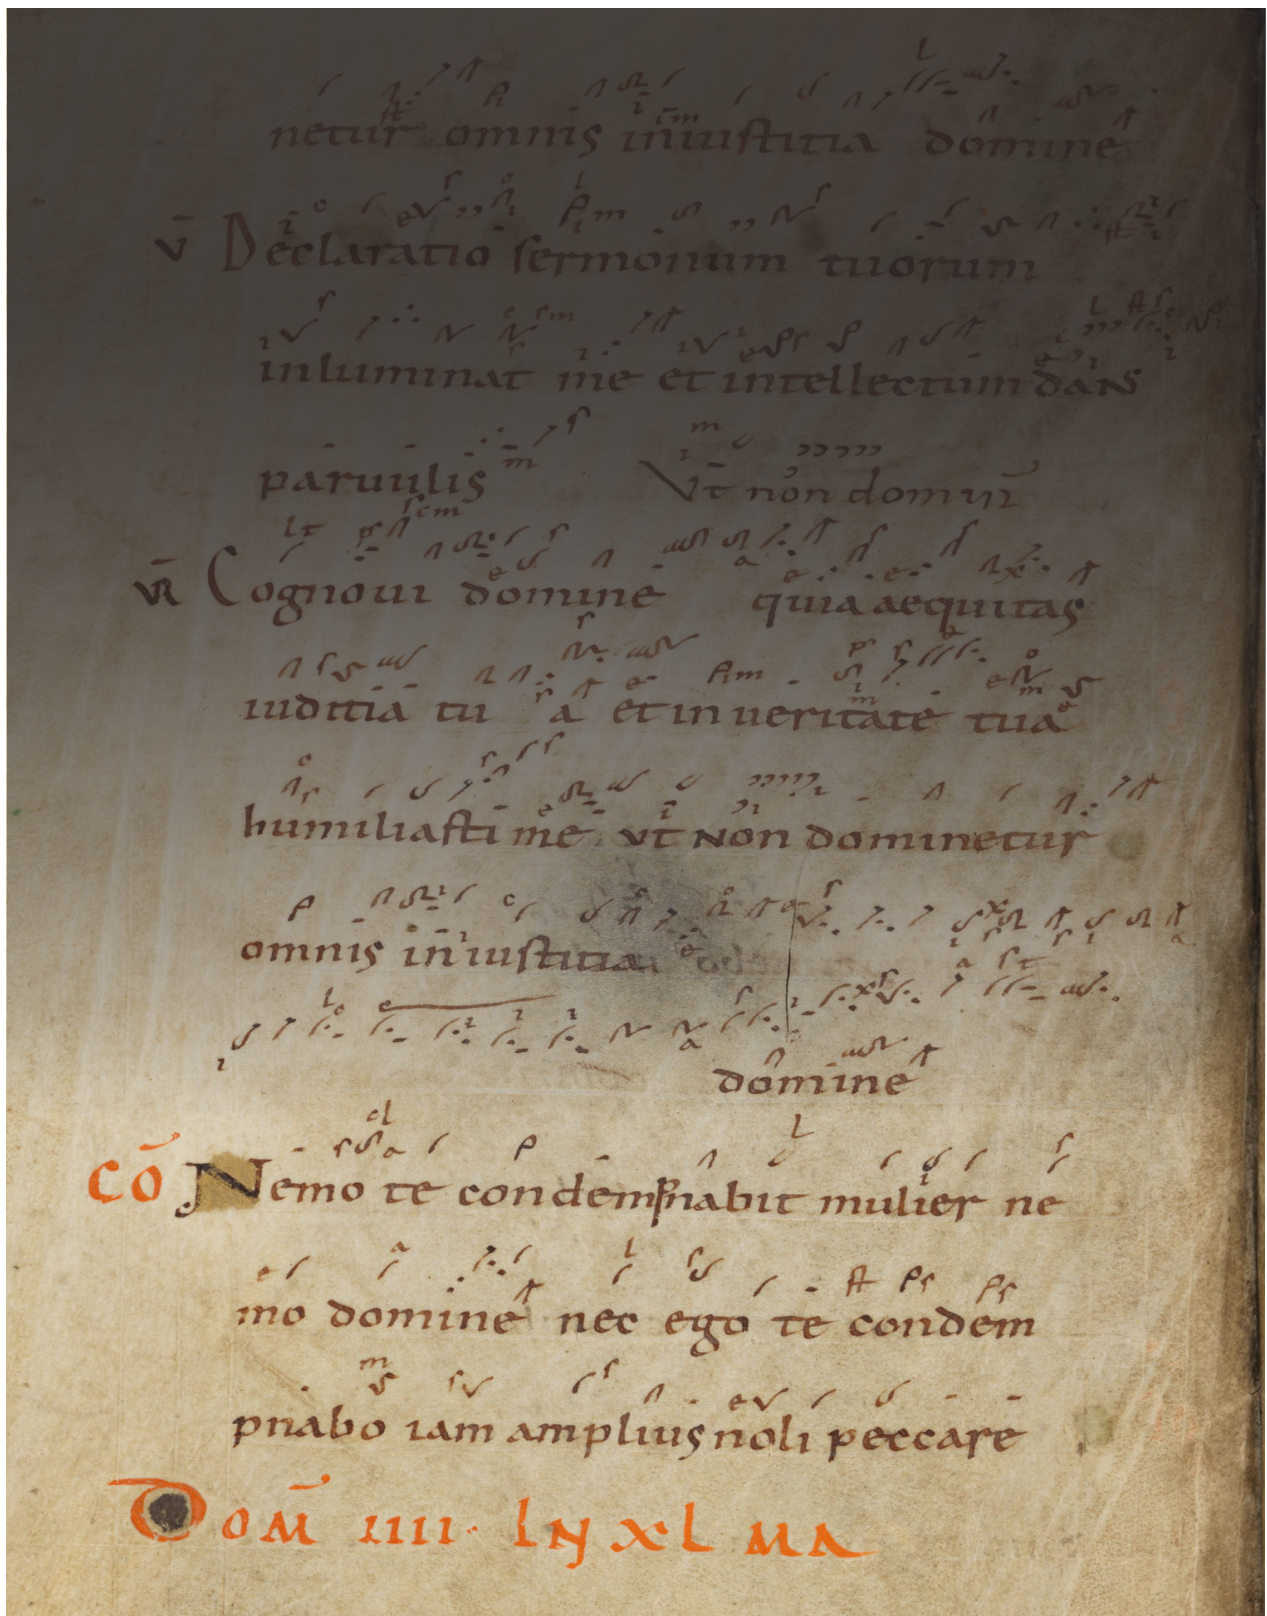 netur omnis iniustitia domine
v̄ Declaratio sermonum tuorum
inluminat me et intellectum dans
paruulis Vt non domin
VR Cognoui domine quia aequitas
iuditia tu a et in ueritate tua
humiliasti me vt Non dominetur
omnis iniustitia
domine
CŌ Nemo te condempnabit mulier ne
mo domine nec ego te condem
pnabo iam amplius noli peccare
DOM̄ IIII